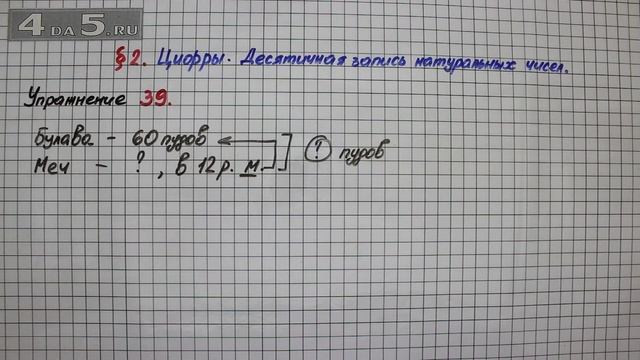 4DA5.RU
§2. Цифры. Десятичная запись натуральных чисел.
Упражнение 39.
Булава - 60 пудов
Меч - ?, в 12 р. м. ? пудов